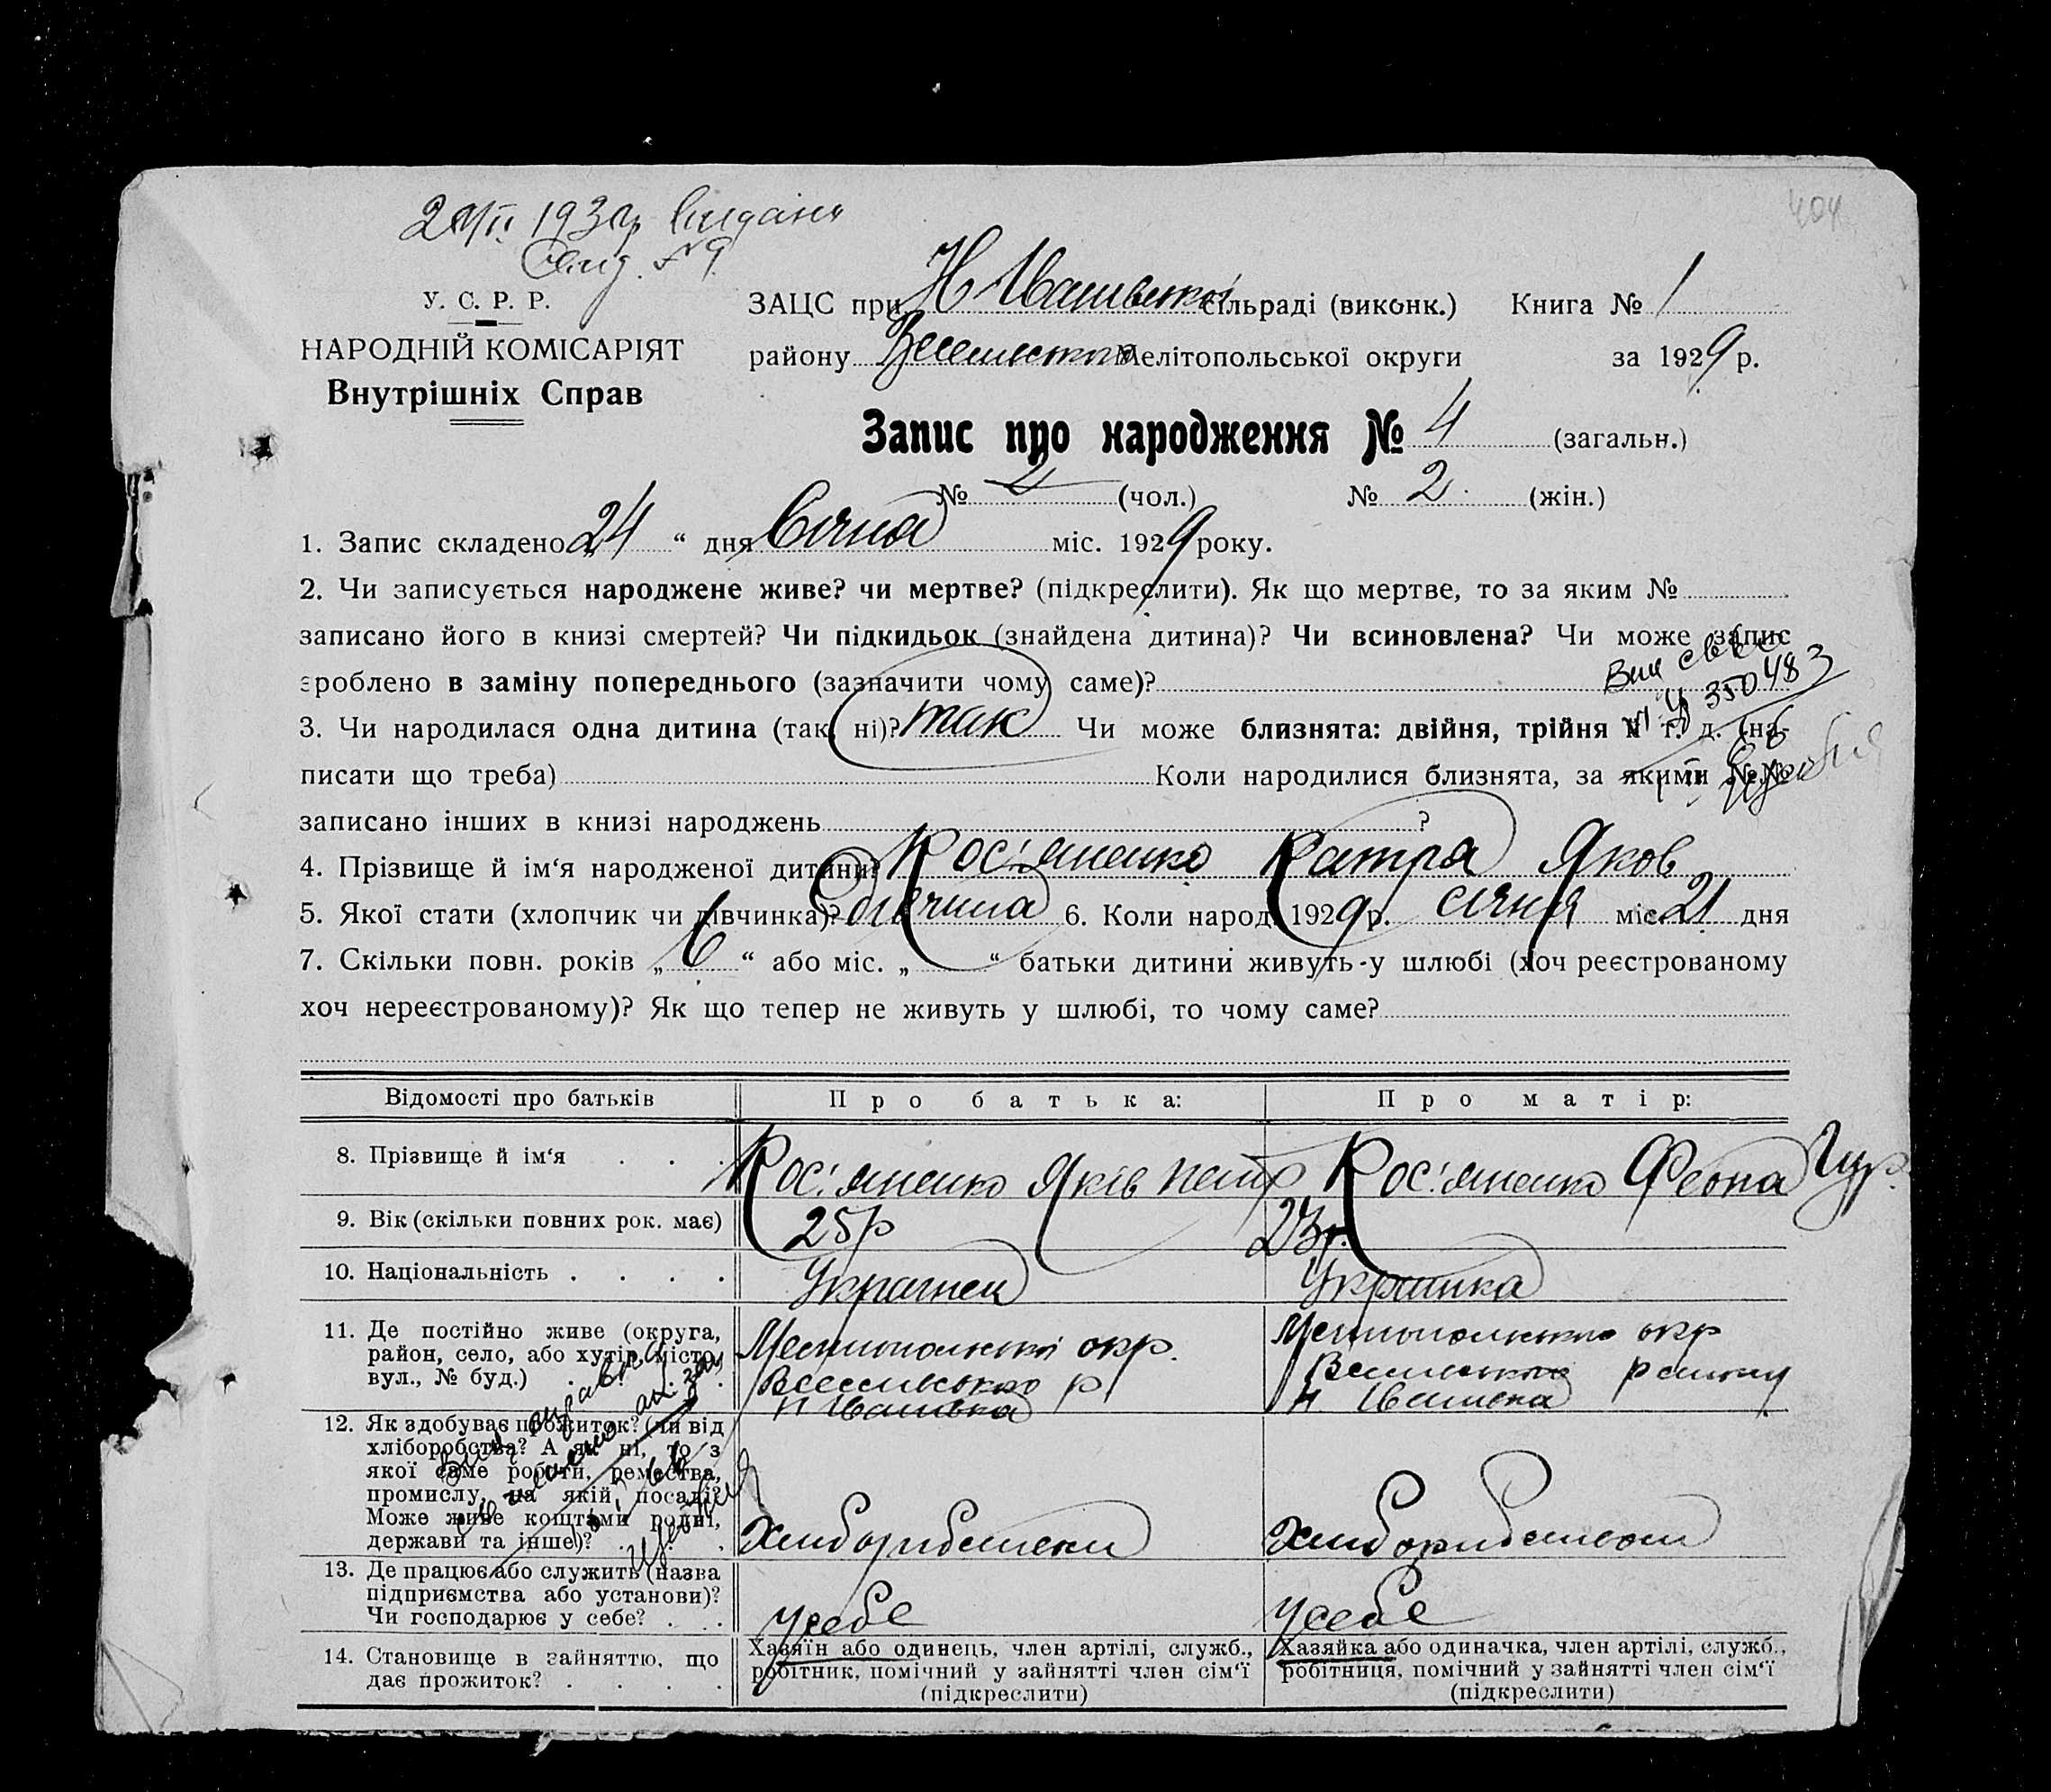 404
1930р видано
№ 9
У. С. Р. Р.
НАРОДНІЙ КОМІСАРІЯТ
Внутрішніх Справ
ЗАЦС при Н Іванівській сільраді (виконк.) Книга № 1
району Веселського Мелітопольської округи за 1929 р.
Запис про народження № 4 (загальн.)
№ (чол.) № 2 (жін.)
1. Запис складено „24“ дня Січня міс. 1929 року.
2. Чи записується народжене живе? чи мертве? (підкреслити). Як що мертве, то за яким №
записано його в книзі смертей? Чи підкидьок (знайдена дитина)? Чи всиновлена? Чи може запис
зроблено в заміну попереднього (зазначити чому саме)?
350483
3. Чи народилася одна дитина (так, ні)? так Чи може близнята: двійня, трійня й т. д. (на-
писати що треба) Коли народилися близнята, за якими №№
записано інших в книзі народжень ?
4. Прізвище й ім‘я народженої дитини? Кос'яненко Катря Яков
5. Якої стати (хлопчик чи дівчинка)? дівчина 6. Коли народ. 1929 р. січня міс. 21 дня
7. Скільки повн. років „6“ або міс. „ “ батьки дитини живуть у шлюбі (хоч реєстрованому
хоч нереєстрованому)? Як що тепер не живуть у шлюбі, то чому саме?
Відомості про батьків Про батька: Про матір:
8. Прізвище й ім‘я . . . Кос'яненко Яків Петр Кос'яненко Феона Гур.
9. Вік (скільки повних рок. має) 25 р 23 р.
10. Національність . . . . Українец Українка
11. Де постійно живе (округа,
район, село, або хутір, місто,
вул., № буд.)
Мелітопольської окр.
Веселського р
Н Іванівка
Мелітопольської окр
Веселського району
Н Іванівка
12. Як здобуває прожиток? (чи від
хліборобства? А як ні, то з
якої саме роботи, ремества,
промислу, на якій посаді?
Може живе коштами родні,
держави та інше)?
Хліборобством Хліборобством
13. Де працює або служить (назва
підприємства або установи)?
Чи господарює у себе? . . .
У себе У себе
14. Становище в зайняттю, що
дає прожиток? . . . .
Хазяїн або одинець, член артілі, служб.,
робітник, помічний у зайнятті член сім‘ї
(підкреслити)
Хазяйка або одиначка, член артілі, служб.,
робітниця, помічний у зайнятті член сім‘ї
(підкреслити)